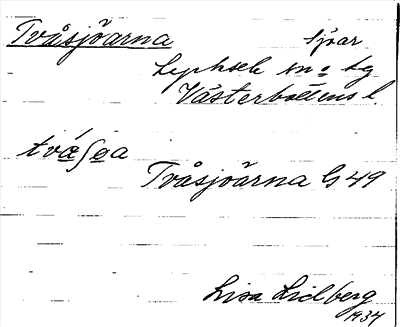 Tvåsjöarna sjöar
Lycksele sn o tg
Västerbottens l.
två ʃɷa
Tvåsjöarna G 49
Lisa Lidberg
1934